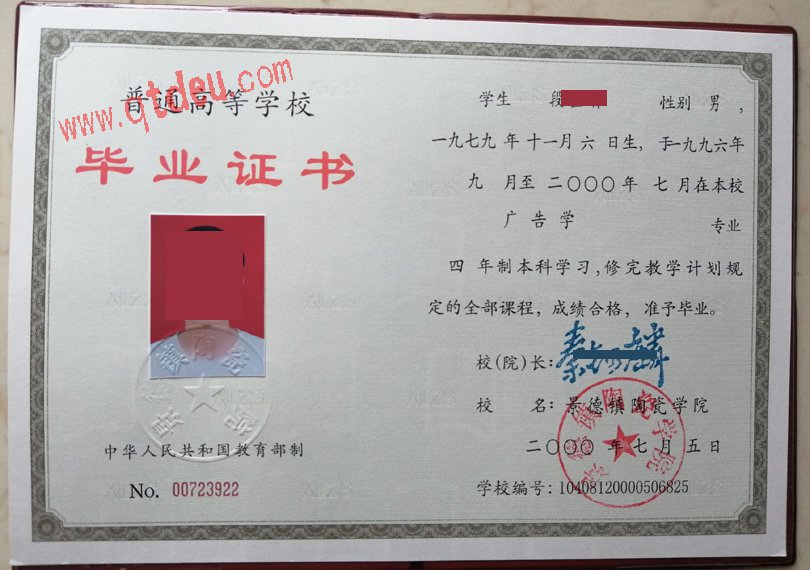 www.qtdeu.com
普通高等学校
毕业证书
中华人民共和国教育部制
No. 00723922
学生 段 性别 男,
一九七九年十一月六日生,于一九九六年
九月至二〇〇〇年七月在本校
广告学 专业
四年制本科学习,修完教学计划规
定的全部课程,成绩合格,准予毕业。
校(院)长:秦 麟
校名:景德镇陶瓷学院
二〇〇〇年七月五日
学校编号:10408120000506825
景德镇陶瓷学院